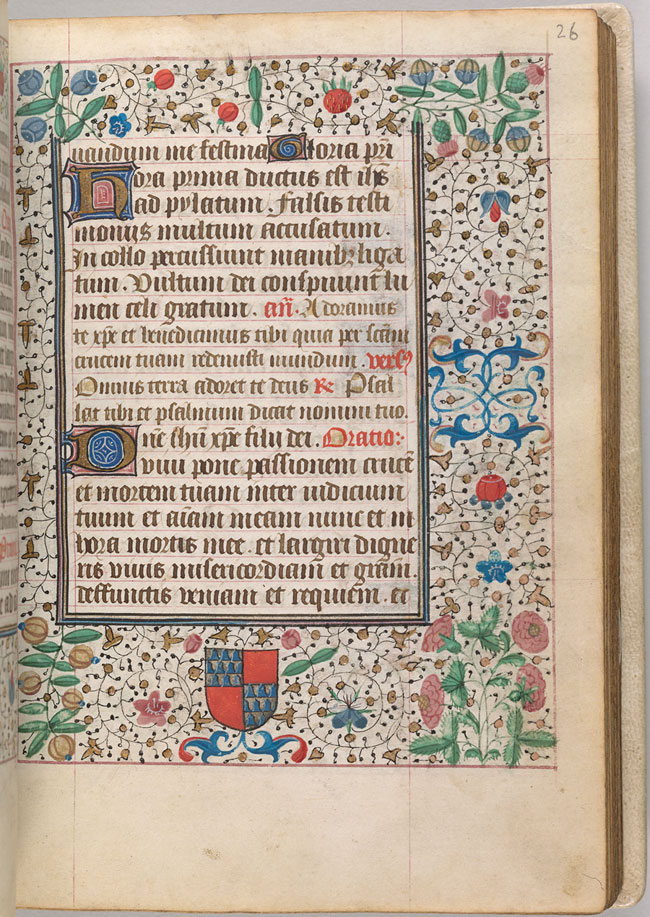 26
uandum me festina Gloria pri
Hora prima ductus est ihs
ad pylatum. falsis testi
moniis multum accusatum.
In collo percussiunt manib3 liga
tum. Vultum dei conspuiunt lu
men celi gratum. añ. Adoramus
te xpe et benedicimus tibi quia per scām
crucem tuam redemisti mundum. vers9
Omnis terra adoret te deus R Psal
lat tibi et psalmum dicat nomini tuo.
Dñe ihu xpe filii dei. Oratio:
viui pone passionem crucē
et mortem tuam inter iudicium
tuum et aīam meam nunc et in
hora mortis mee. et largiri digne
ris viuis misericordiam et gram.
deffunctis veniam et requiem. et